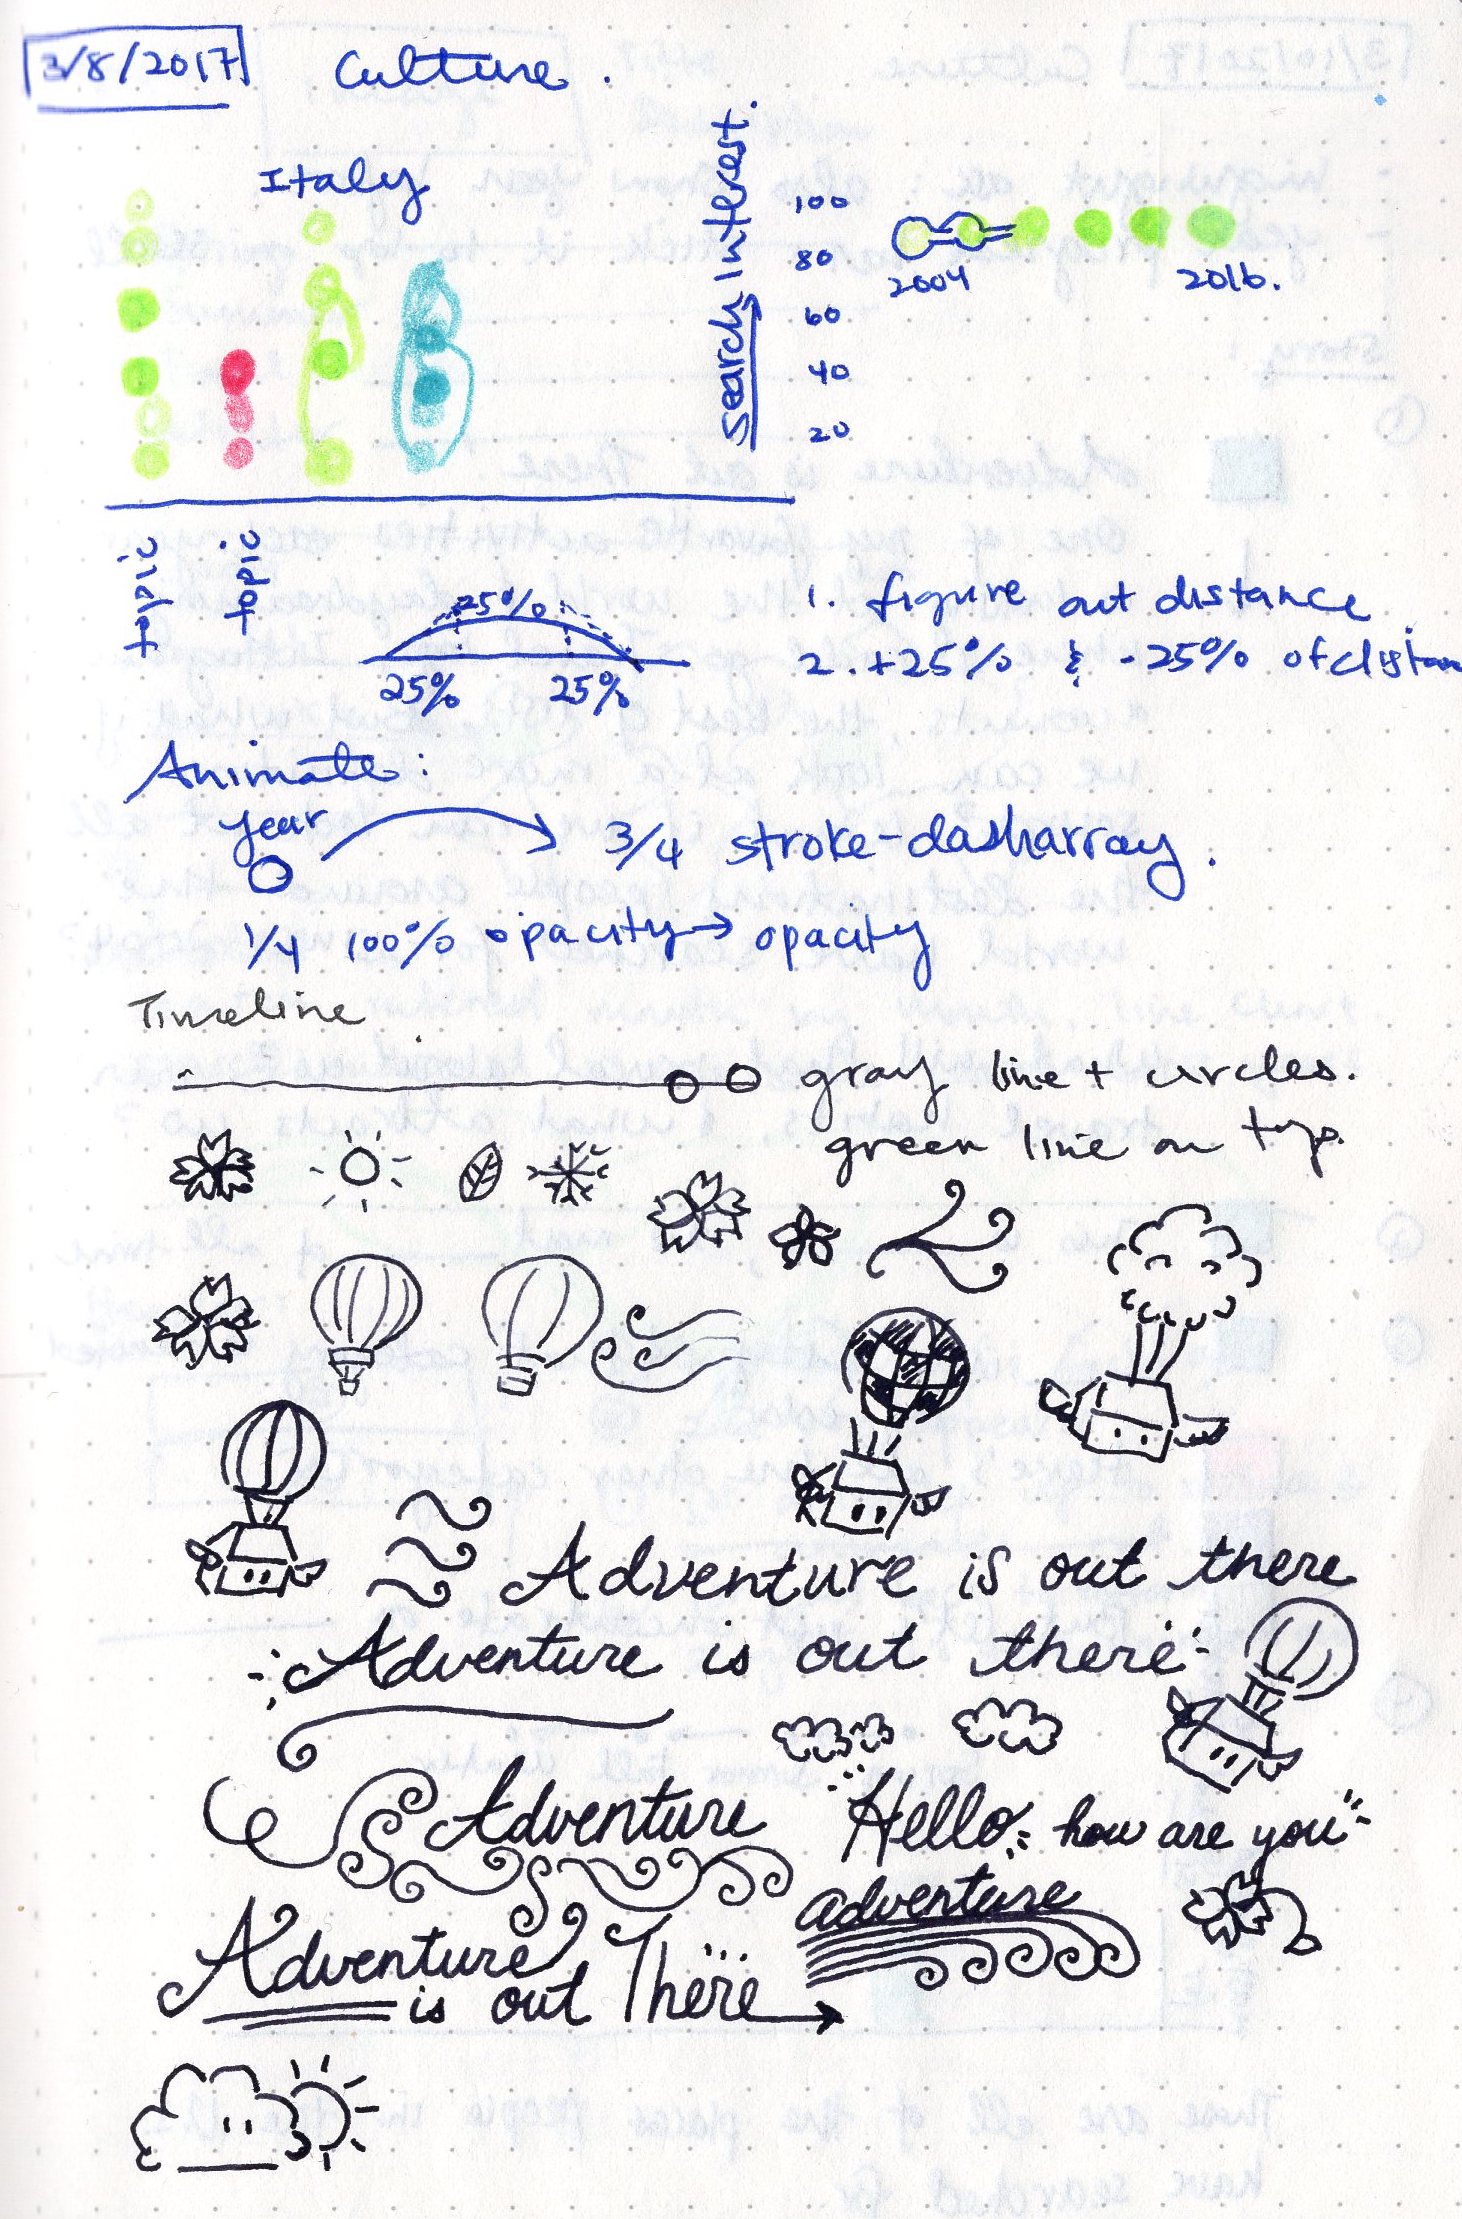 3/8/2017 Culture.
Italy
search interest.
100
80
60
40
20
2004 2016.
topic
topic
25%
25% 25%
1. figure out distance
2. +25% & -25% of distan
Animate:
year
3/4 stroke-dasharray.
1/4 100% opacity → opacity
Timeline
gray line + circles.
green line on top.
Adventure is out there
Adventure is out there
Adventure
Hello, how are you
adventure
Adventure
is out There